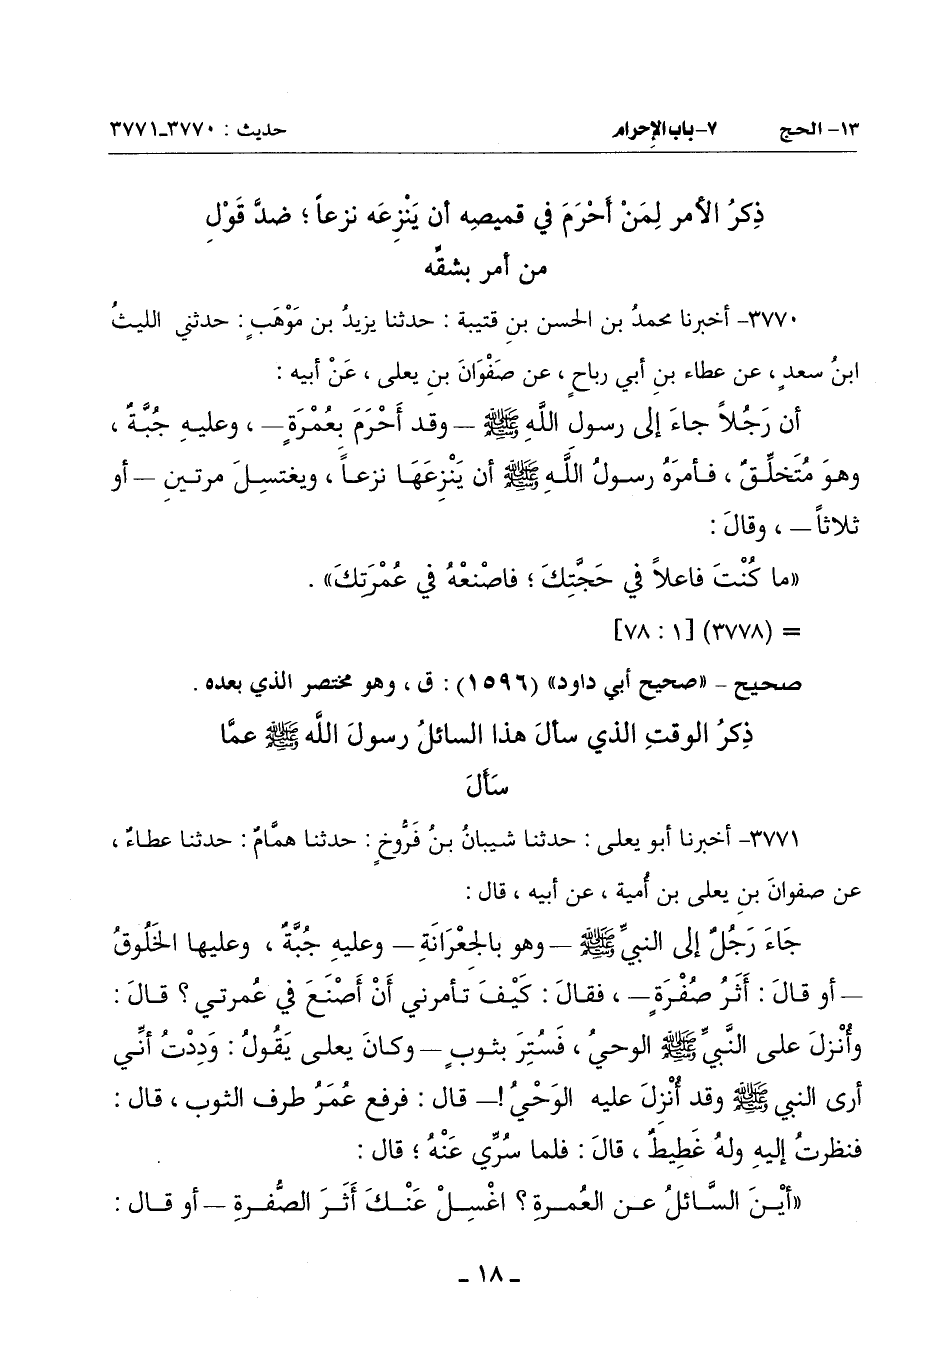 ١٣- الحج ٧-باب الإحرام حديث : ٣٧٧٠-٣٧٧١
ذِكرُ الأمر لِمَنْ أَحْرَمَ في قميصِه أن يَنْزِعَه نزعاً ؛ ضدَّ قَوْلِ
من أمر بشقِّه
٣٧٧٠- أخبرنا محمدُ بن الحسن بنِ قتيبة : حدثنا يزيدُ بن مَوْهَبٍ : حدثني الليثُ
ابنُ سعدٍ ، عن عطاء بنِ أبي رباحٍ ، عن صَفْوَانَ بنِ يعلى ، عَنْ أبيه :
أن رَجُلاً جاءَ إلى رسول اللَّهِ ﷺ –وقد أَحْرَمَ بعُمْرَةٍ– ، وعليهِ جُبَّةٌ ،
وهوَ مُتَخلِّقٌ ، فأمرَهُ رسولُ اللَّهِ ﷺ أن يَنْزِعَهَا نزعاً ، ويغتسِلَ مرتينِ –أو
ثلاثاً– ، وقالَ :
«ما كُنْتَ فاعلاً في حَجَّتِكَ ؛ فاصْنَعْهُ في عُمْرَتِكَ» .
= (٣٧٧٨) [١ : ٧٨]
صحيح – «صحيح أبي داود» (١٥٩٦) : ق ، وهو مختصر الذي بعده .
ذِكرُ الوقتِ الذي سألَ هذا السائلُ رسولَ اللَّه ﷺ عمَّا
سَأَلَ
٣٧٧١- أخبرنا أبو يعلى : حدثنا شيبانُ بنُ فَرُّوخٍ : حدثنا همَّامٌ : حدثنا عطاءٌ ،
عن صفوانَ بنِ يعلى بن أُمية ، عن أبيه ، قال :
جَاءَ رَجُلٌ إلى النبيِّ ﷺ –وهو بالجِعْرَانَةِ– وعليهِ جُبَّةٌ ، وعليها الخَلُوقُ
–أو قالَ : أَثَرُ صُفْرَةٍ– ، فقالَ : كَيْفَ تأمرني أَنْ أَصْنَعَ في عُمرتي ؟ قالَ :
وأُنْزِلَ على النَّبيِّ ﷺ الوحيُ ، فَسُتِرَ بثوبٍ –وكانَ يعلى يَقُولُ : وَدِدْتُ أنِّي
أرى النبي ﷺ وقد أُنْزِلَ عليه الوَحْيُ !– قال : فرفع عُمَرُ طرف الثوب ، قال :
فنظرتُ إليهِ ولهُ غَطِيطٌ ، قالَ : فلما سُرِّي عَنْهُ ؛ قال :
«أيْنَ السَّائلُ عنِ العُمرةِ ؟ اغْسِلْ عَنْكَ أَثَرَ الصُّفرةِ –أو قال :
– ١٨ –